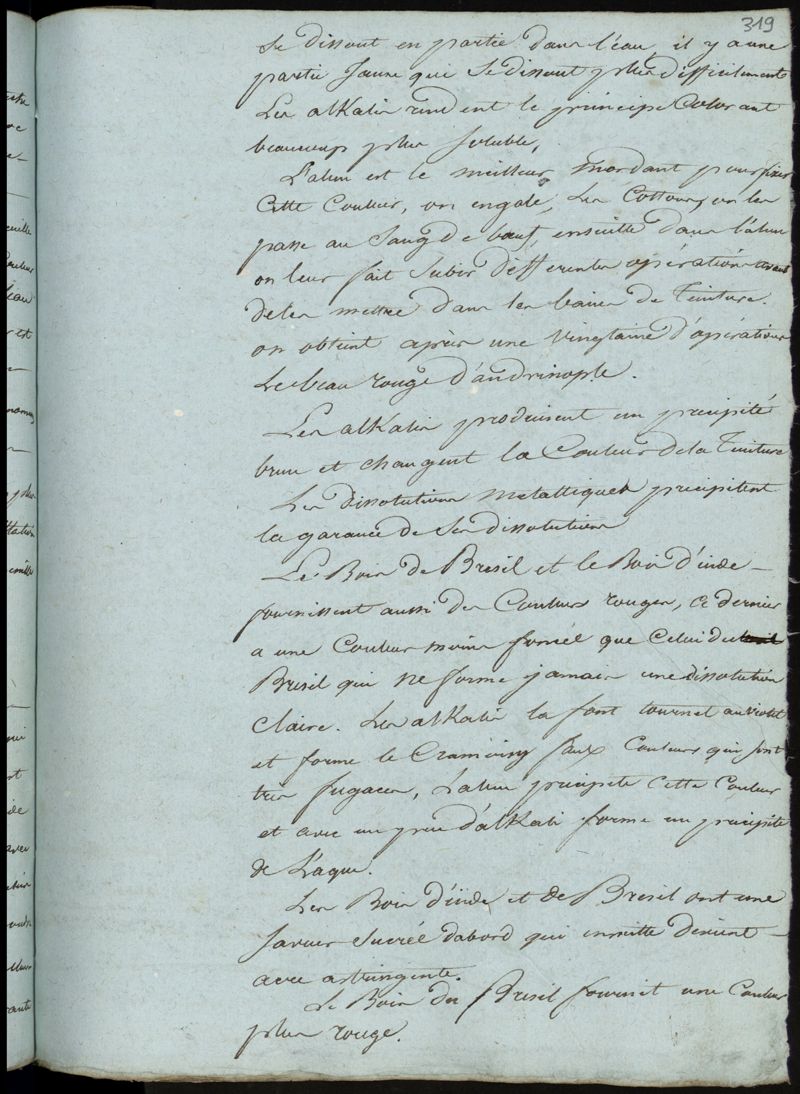 319
se dissout en partie dans l'eau, il y a une
partie Jaune qui se dissout plus difficilement
Les alKalis rendent le principe Colorant
beaucoup plus soluble,
L'alun est le meilleur mordant pour fixer
Cette Couleur, on engale, Les Cottons, on les
passe au Sang de bœuf, ensuitte dans l'alun
on leur fait Subir differentes opérations avant
de les mettre dans les bains de Teinture.
on obtient après une vingtaine d'opérations
Le beau rouge d'andrinople.
Les alKalis produisent un precipité
brun et changent la Couleur de la Teinture
Les dissolutions metalliques precipitent
la garance de Ses dissolutions
Le Bois de Bresil et le Bois d'inde
fournissent aussi des Couleurs rouges, ce dernier
a une Couleur moins foncée que Celui du
Bresil qui ne forme jamais une dissolution
Claire. Les alKalis la font tourner au violet
et forme le Cramoisy faux Couleurs qui sont
très fugaces, L'alun precipite cette Couleur
et avec un peu d'alKali forme un precipité
de Laque.
Les Bois d'inde et de Bresil ont une
saveur sucrée dabord qui ensuitte devient
acre astringente.
Le Bois du Bresil fournit une Couleur
plus rouge.